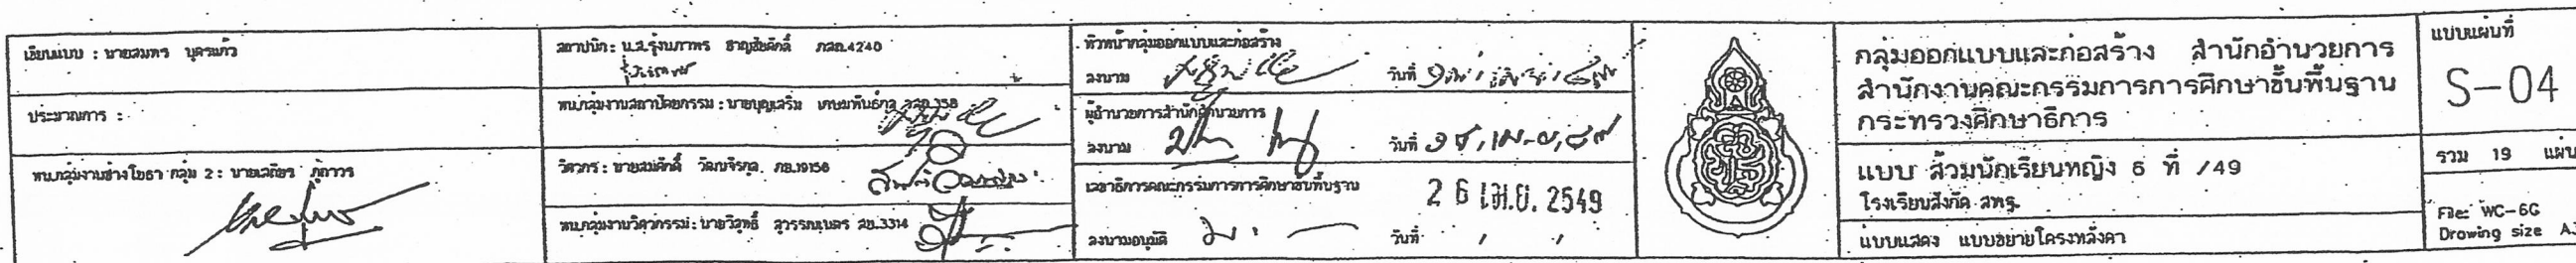 เขียนแบบ : นายสมพร บุตรแก้ว
ประมาณการ :
หน.กลุ่มงานช่างโยธา กลุ่ม 2 : นายเสถียร ภู่ถาวร
สถาปนิก : น.ส.รุ่งนภาพร ชาญชัยศักดิ์ ภสถ.4240
หน.กลุ่มงานสถาปัตยกรรม : นายบุญเสริม เกษมพันธ์กุล
วิศวกร : นายสมศักดิ์ วัฒนจิรกุล ภย.19156
หน.กลุ่มงานวิศวกรรม : นายวิสุทธิ์ สุวรรณเนตร สย.3314
หัวหน้ากลุ่มออกแบบและก่อสร้าง
ลงนาม วันที่
ผู้อำนวยการสำนักอำนวยการ
ลงนาม วันที่
เลขาธิการคณะกรรมการการศึกษาขั้นพื้นฐาน
26 เม.ย. 2549
ลงนามอนุมัติ วันที่ / /
กลุ่มออกแบบและก่อสร้าง สำนักอำนวยการ
สำนักงานคณะกรรมการการศึกษาขั้นพื้นฐาน
กระทรวงศึกษาธิการ
แบบ ส้วมนักเรียนหญิง 6 ที่ /49
โรงเรียนสังกัด สพฐ.
แบบแสดง แบบขยายโครงหลังคา
แบบแผ่นที่
S-04
รวม 19 แผ่น
File: WC-6G
Drawing size